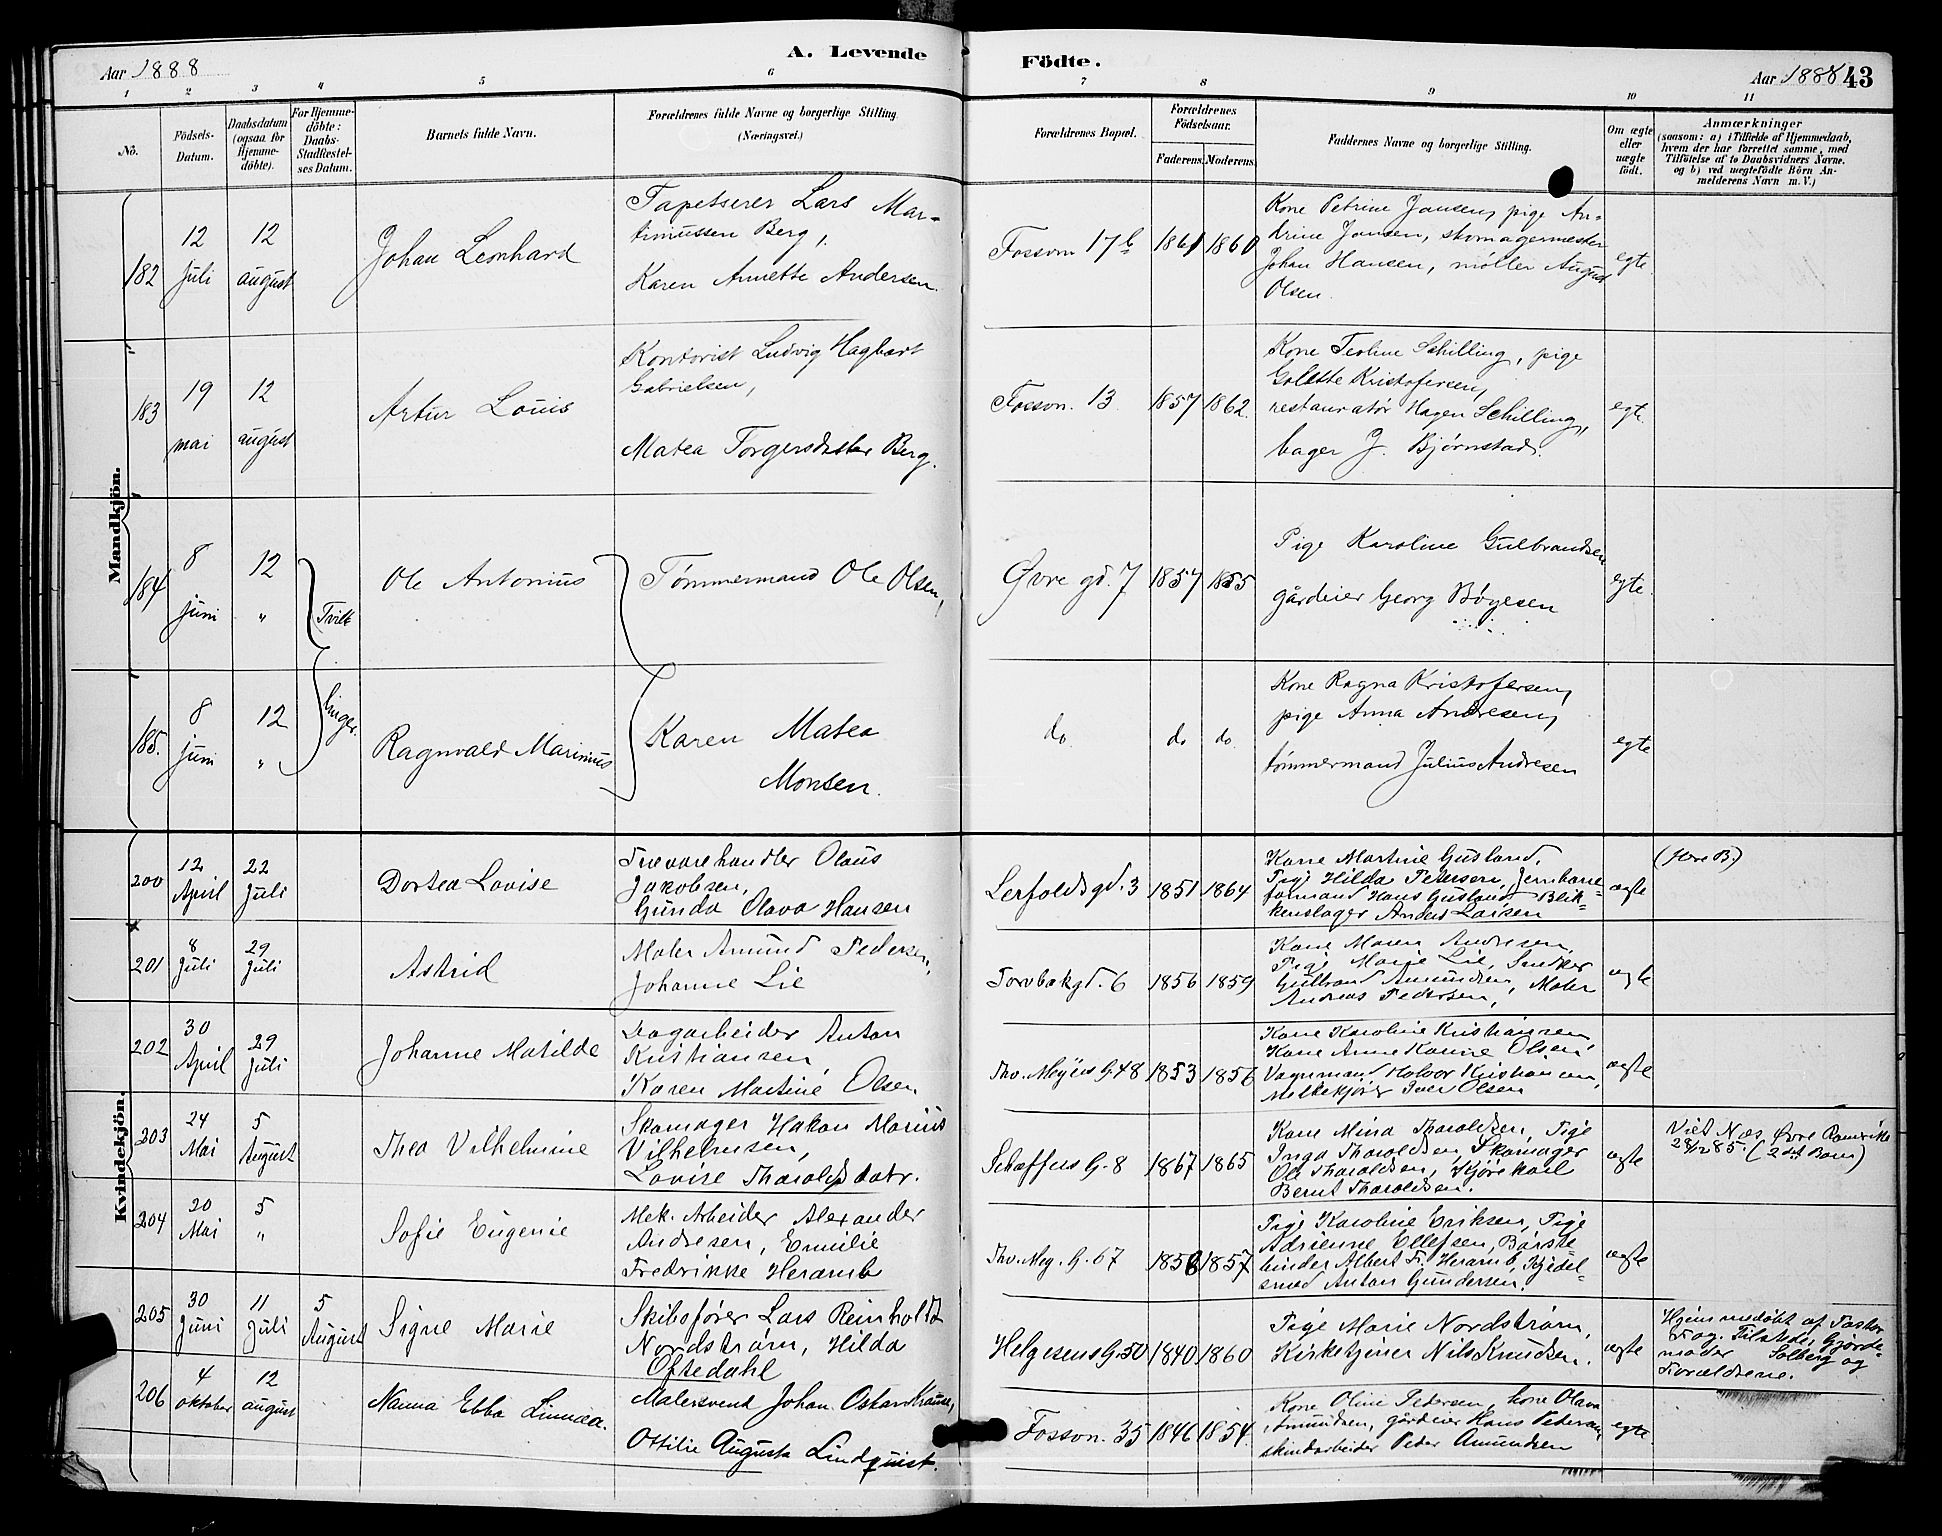 A. Levende Födte.
Aar 1888
Aar 1888 43
1 2 3 4 5 6 7 8 9 10 11
No.
Födsels-Datum.
Daabsdatum (ogsaa för Hjemme-döbte).
For Hjemme-döbte: Daabs-Stadfæstel-ses Datum.
Barnets fulde Navn.
Forældrenes fulde Navne og borgerlige Stilling (Næringsvei.)
Forældrenes Bopæl.
Forældrenes Födselsaar.
Faderens. Moderens.
Faddernes Navne og borgerlige Stilling.
Om ægte eller uægte födt.
Anmærkninger
(saasom: a) i Tilfælde af Hjemmedaab,
hvem der har forrettet samme, med
Tilföielse af to Daabsvidners Navne.
og b) ved uægtefödte Börn An-
melderens Navn m. V.)
Mandkjön.
182
12 Juli
12 august
Johan Leonhard
Tapetserer Lars Mar-
tinussen Berg,
Karen Annette Andersen.
Fossvn 17b
1861 1860
Kone Petrine Jansen, pige An-
drine Jansen, skomagermester
Johan Hansen, møller August
Olsen.
egte
183
19 mai
12 august
Artur Louis
Kontorist Ludvig Hagbart
Gabrielsen,
Matea Torgersdatter Berg.
Fossvn. 13
1857 1862
Kone Teoline Schilling, pige
Golette Kristofersen,
restauratør Hagen Schilling,
bager J. Bjørnstad.
egte.
184
8 juni
12 "
Tvil-
Ole Antonius
Tømmermand Ole Olsen,
Øvre gd. 7
1857 1855
Pige Karoline Gulbrandsen
gårdeier Georg Bøyesen
egte.
185.
8 juni
12 "
linger.
Ragnvald Marinius
Karen Matea
Monsen.
do
do do.
Kone Ragna Kristofersen,
pige Anna Andresen,
tømmermand Julius Andresen
egte
Kvindekjön.
200
12 April
22 Juli
Dortea Lovise
Trevarehandler Olaus
Jakobsen,
Gunda Olava Hansen
Lerfoldsgd. 3
1851 1864
Kone Martine Gusland,
Pige Hilda Petersen, Jernbane-
formand Hans Gusland, Blik-
kenslager Anders Larsen
ægte
201
8 Juli
29 Juli
Astrid
Maler Amund Pedersen,
Johanne Lie
Torvbakgd. 6
1856 1859
Kone Maren Andresen,
Pige Marie Lie, Snedker
Gulbrand Amundsen, Maler
Andreas Pedersen,
ægte
202
30 April
29 Juli
Johanne Matilde
Dagarbeider Anton
Kristiansen
Karen Martine Olsen
Thv. Meyers G. 48
1853 1856
Kone Karoline Kristiansen,
Kone Anne Karine Olsen,
Vognmand Halvor Kristiansen,
Melkekjører Iver Olsen
ægte
203
24 Mai
5 August
Thea Vilhelmine
Skomager Hakon Marius
Vilhelmsen,
Lovise Tharaldsdatr.
Schaffers G. 8
1867 1865
Kone Mina Tharaldsen, Pige
Inga Tharaldsen, Skomager
Ole Tharaldsen, Kjørekarl
Bernt Tharaldsen.
ægte
204
20 Mai
5 "
Sofie Eugenie
Mek. Arbeider Alexander
Andresen, Emilie
Fredrikke Heramb
Thv. Mey. G. 67
1858 1857
Pige Karoline Eriksen, Pige
Adrienne Ellefsen, Børste-
binder Albert Fr. Heramb, Kjedel-
smed Anton Gundersen.
ægte
205
30 Juni
11 Juli
5 August
Signe Marie
Skibsfører Lars Reinholdt
Nordstrøm, Hilda
Oftedahl
Helgesens G. 50
1840 1860
Pige Marie Nordstrøm,
Kirketjener Nils Knudsen.
ægte
Hjemmedøbt af Pastor
Fog. Tilstede, Gjorde-
moder Solberg og
Forældrene.
206
4 oktober
12 august
Nanna Ebba Linnea.
Malersvend Johan Oskar Krause,
Ottilie Augusta Lindquist.
Fossvn. 35
1846 1854.
Kone Oline Pedersen, kone Olava
Amundsen, gårdeier Hans Pedersen,
skindarbeider Peder Amundsen
egte